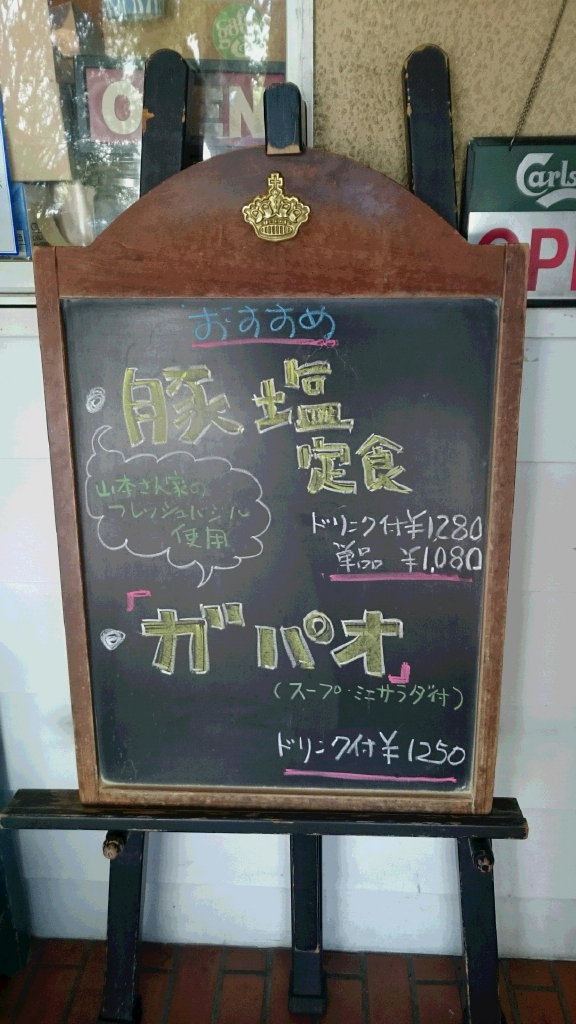 OPEN
Carls
OPE
おすすめ
豚塩
定食
山本さん家の
フレッシュバジル
使用
ドリンク付¥1280
単品 ¥1,080
「ガパオ」
(スープ・ミニサラダ付)
ドリンク付¥1250